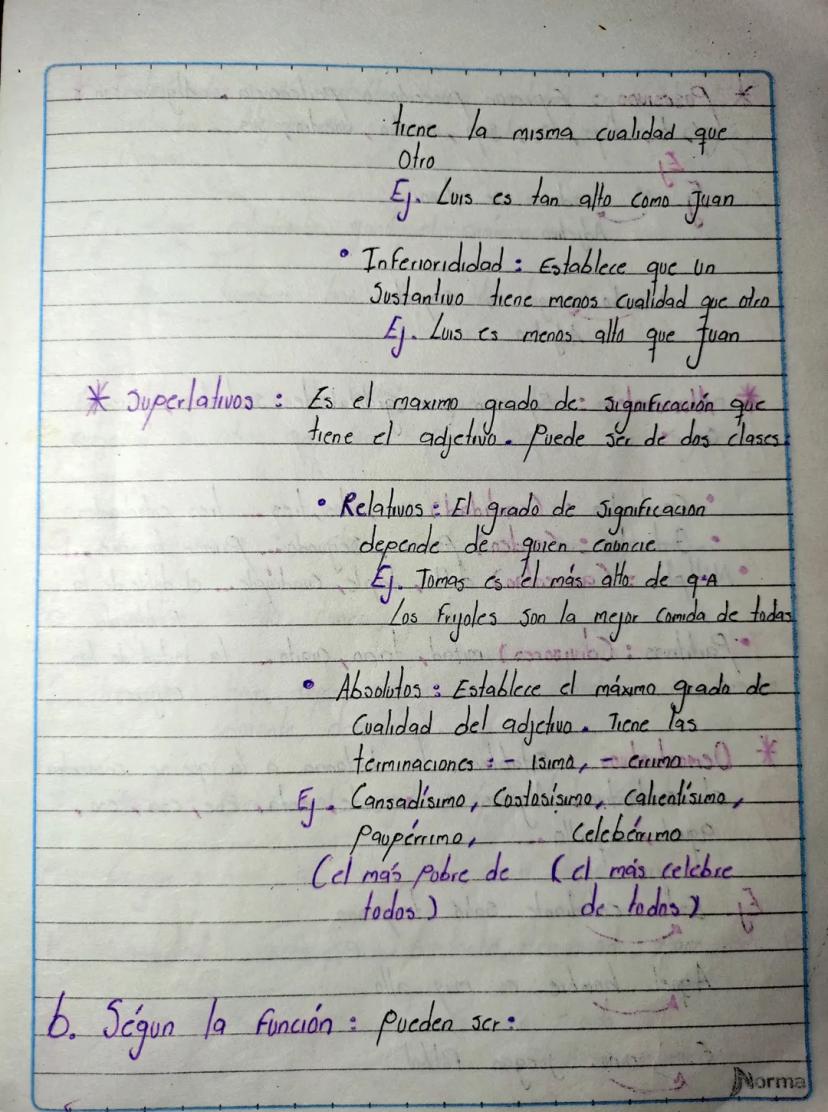 tiene la misma cualidad que
Otro
Ej. Luis es tan alto como Juan
• Inferiorididad : Establece que un
Sustantivo tiene menos cualidad que otro
Ej. Luis es menos alto que Juan
* Superlativos : Es el maximo grado de significación que
tiene el adjetivo. Puede ser de dos clases
• Relativos : El grado de significacion
depende de quien enuncie
Ej. Tomas es el más alto de 9ºA
Los frijoles son la mejor comida de todas
• Absolutos : Establece el máximo grado de
Cualidad del adjetivo. Tiene las
terminaciones : - isimo, - errimo
Ej. Cansadísimo, Costosísimo, calientísimo,
Paupérrimo, Celebérrimo
(el más pobre de (el más celebre
todos) de todos)
b. Ségun la función : Pueden ser :
Norma